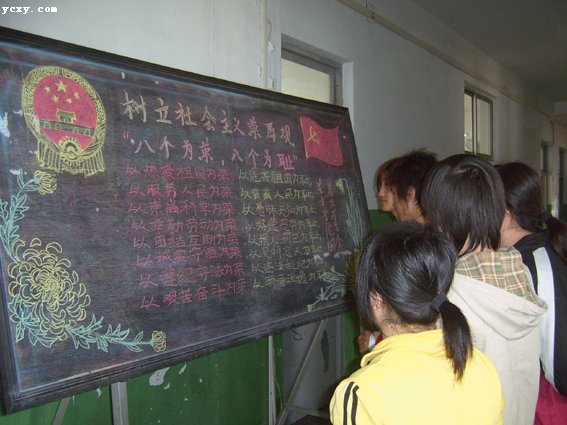 ycxy.com
树立社会主义荣辱观
“八个为荣,八个为耻”
以热爱祖国为荣 以危害祖国为耻
以服务人民为荣 以背离人民为耻
以崇尚科学为荣 以愚昧无知为耻
以辛勤劳动为荣 以好逸恶劳为耻
以团结互助为荣 以损人利己为耻
以诚实守信为荣 以见利忘义为耻
以遵纪守法为荣 以违法乱纪为耻
以艰苦奋斗为荣 以骄奢淫逸为耻